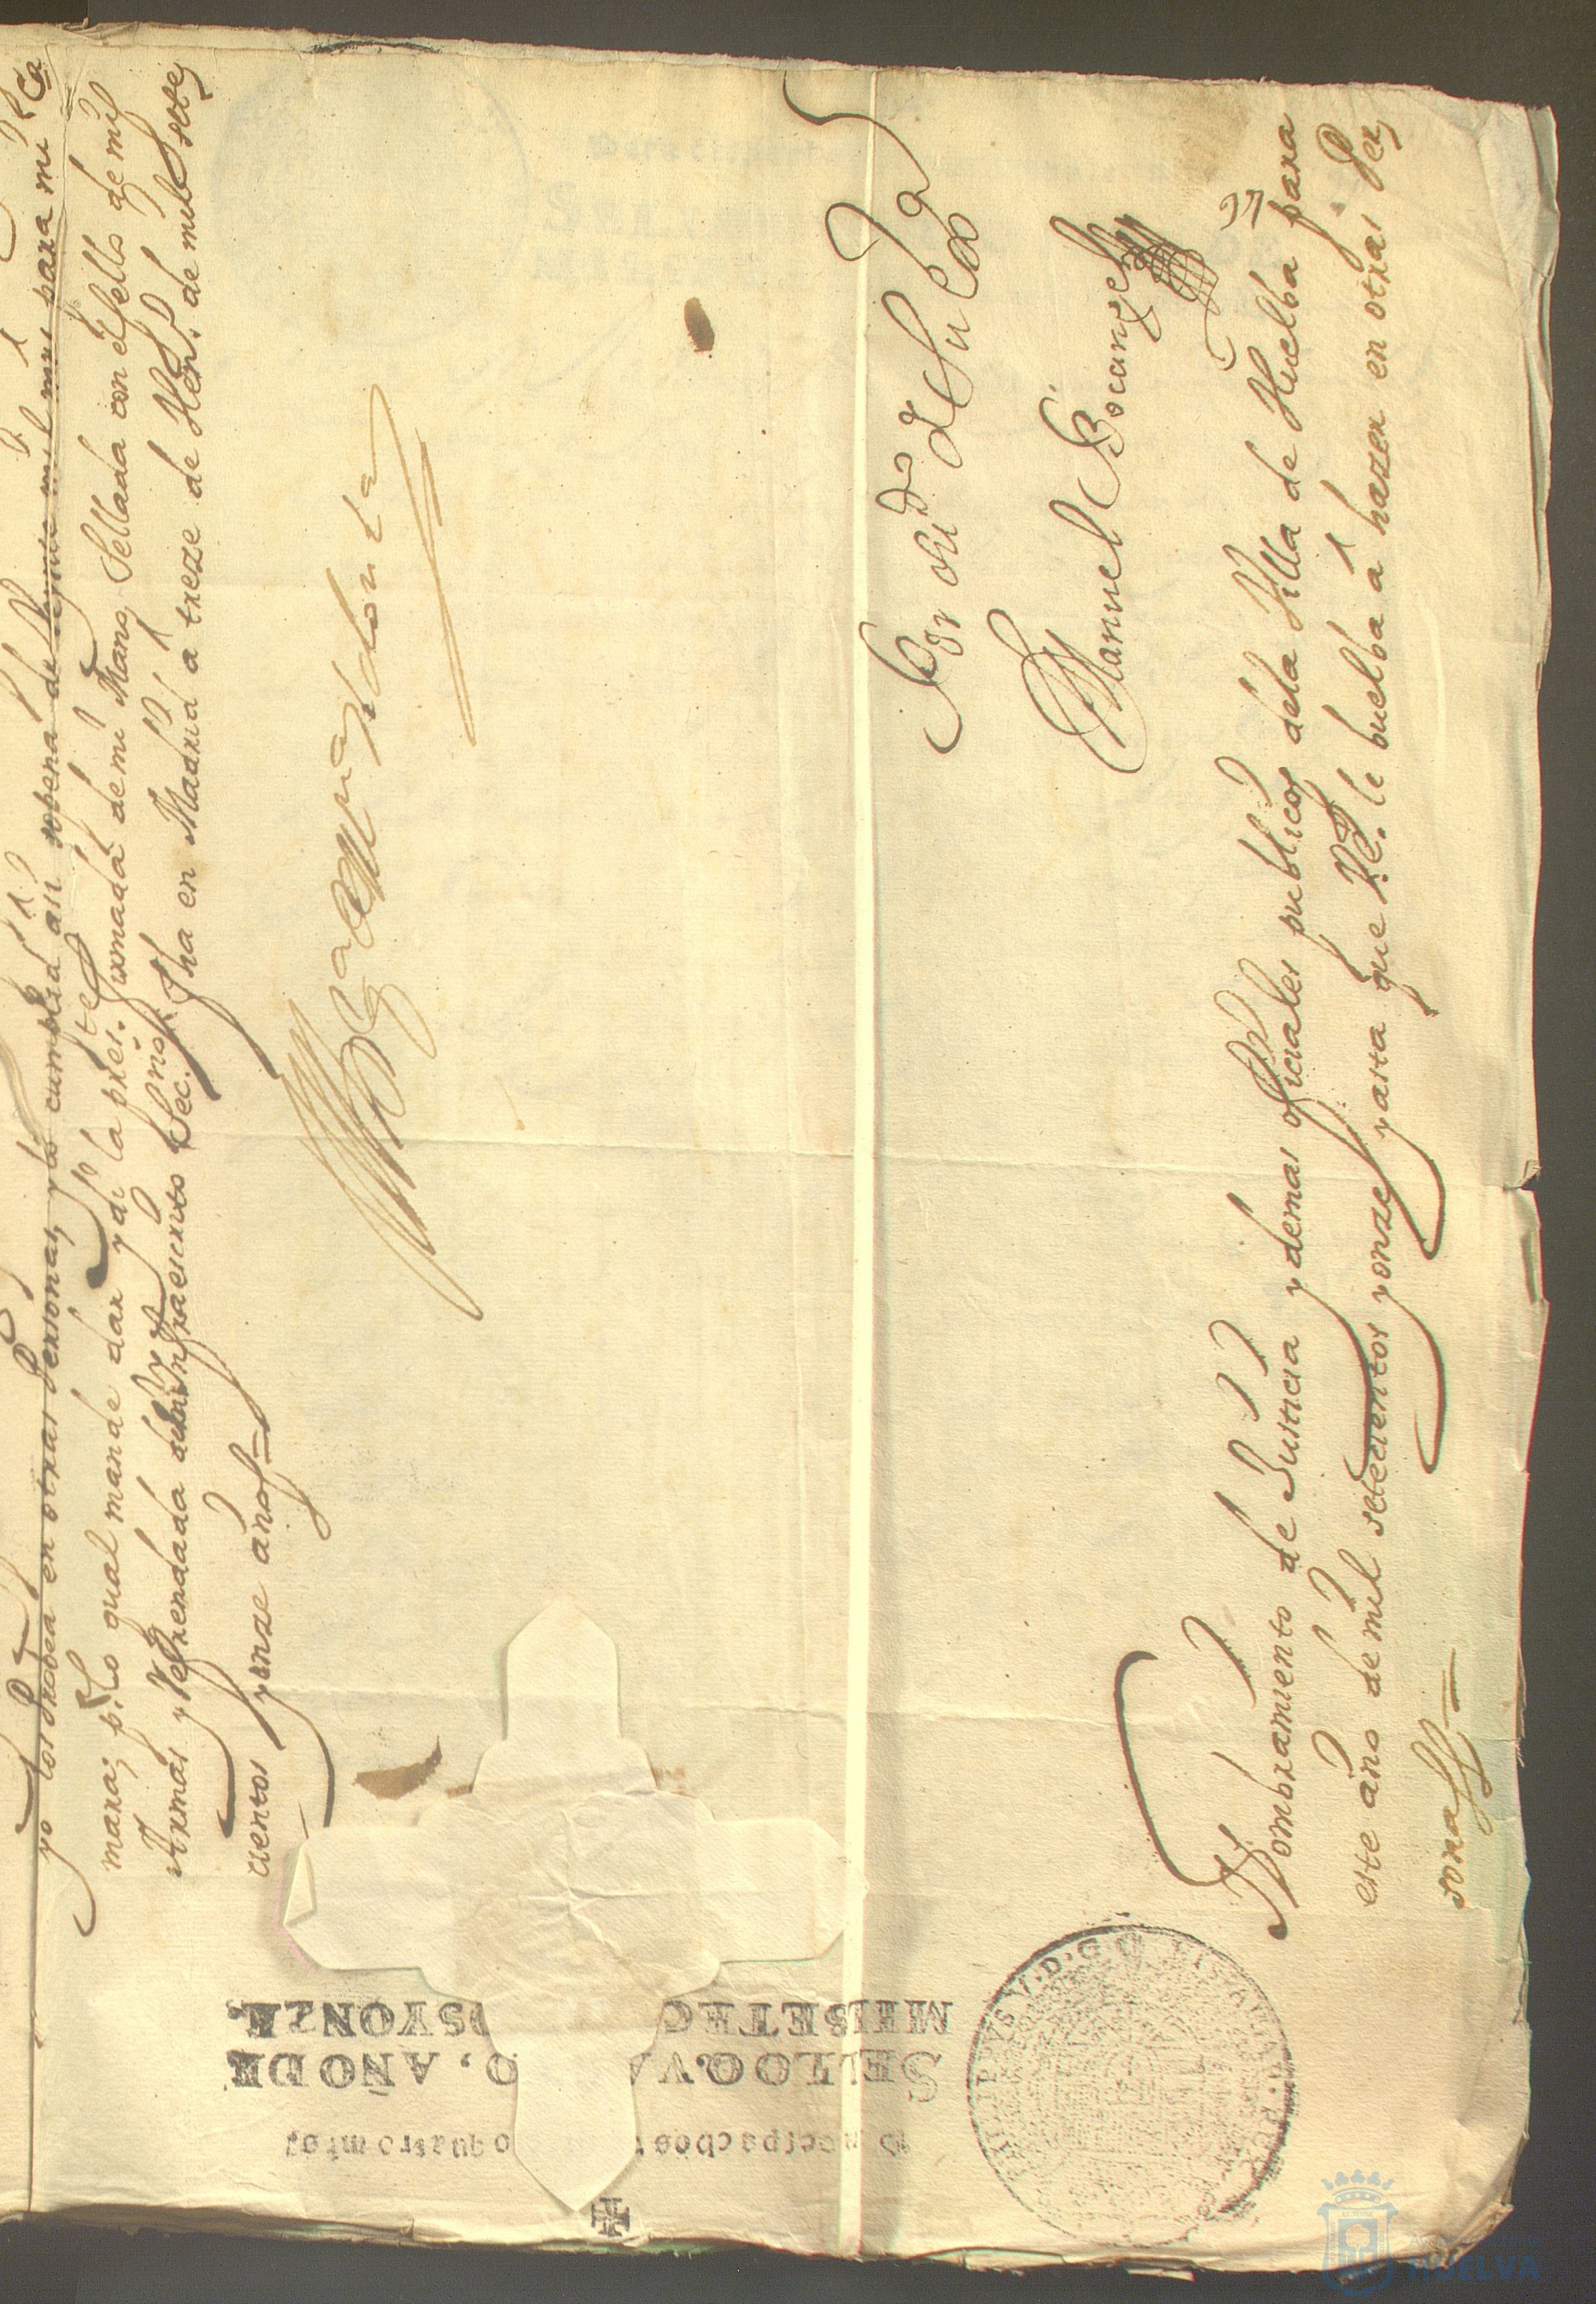 yo los Probea en otras Personas, y lo cumplid assi sopena de veynte mil mrs para mi Ca
mara; p. Lo qual mandé dar y di la pres.te firmada de mi Mano, Sellada con el sello de mis
Armas y Refrendada del Infraescrito Sec.rio fha en Madrid a treze de Hen.o de mil sete
cientos y onze años
Por m.do de su Ex.a
Manuel Bocangel
Nombramiento de Justicia y demas oficiales publicos de la Villa de Huelba para
este año de mil setecientos y onze, y asta que V.E. le buelba á hazer en otras Per
sonas
SELLO QVA O, AÑO DE
MIL SETEC OS Y ONZE.
PHILIPPVS V. D. G. HISPANIAR
HUELVA